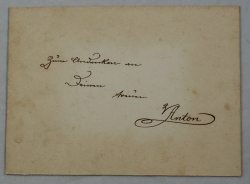 Zum Andenken an
Deinen
Anton